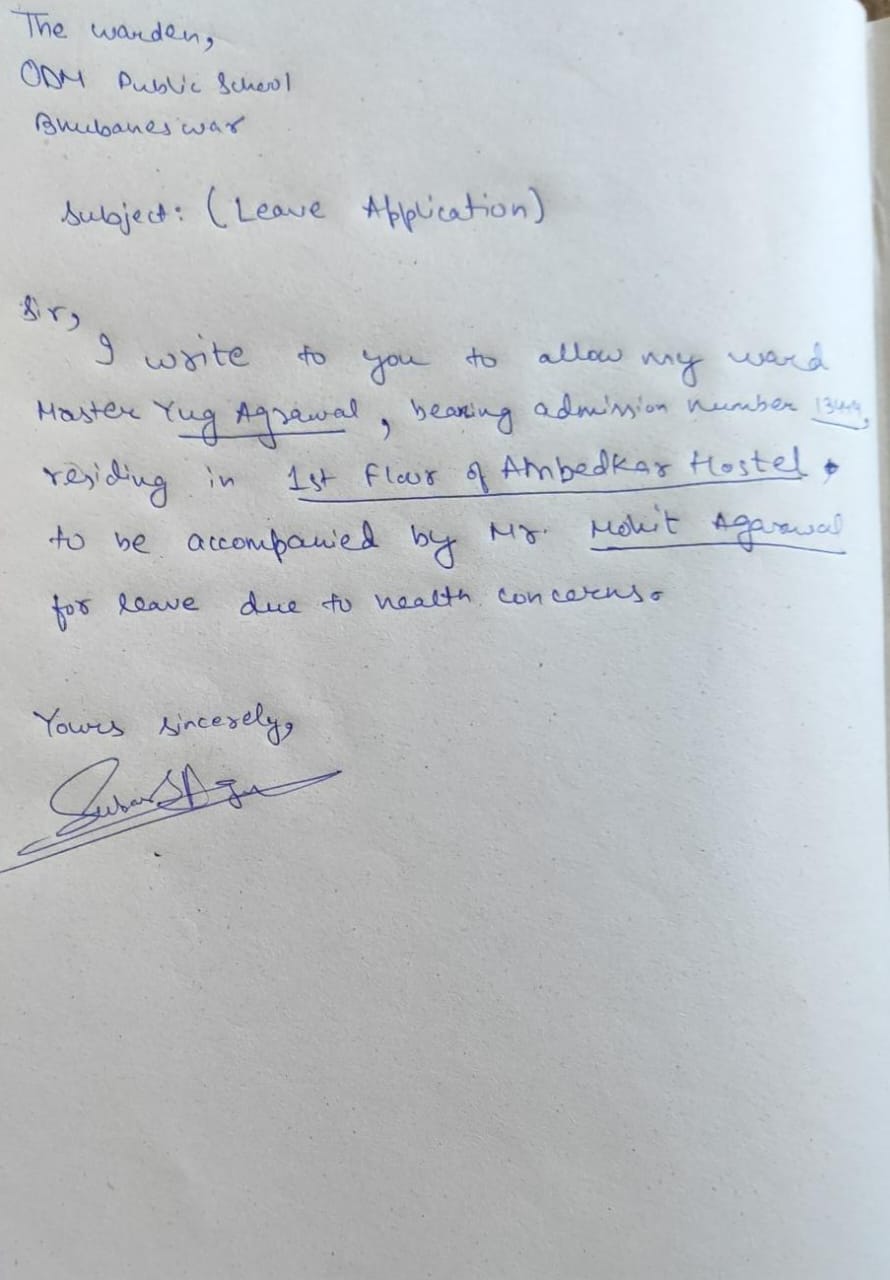 The warden,
ODM Public School
Bhubaneswar
Subject: (Leave Application)
Sir,
I write to you to allow my ward
Master Yug Agrawal, bearing admission number
residing in 1st Floor of Ambedkar Hostel,
to be accompanied by Mr. Mohit Agarwal
for leave due to health concerns.
Yours sincerely,